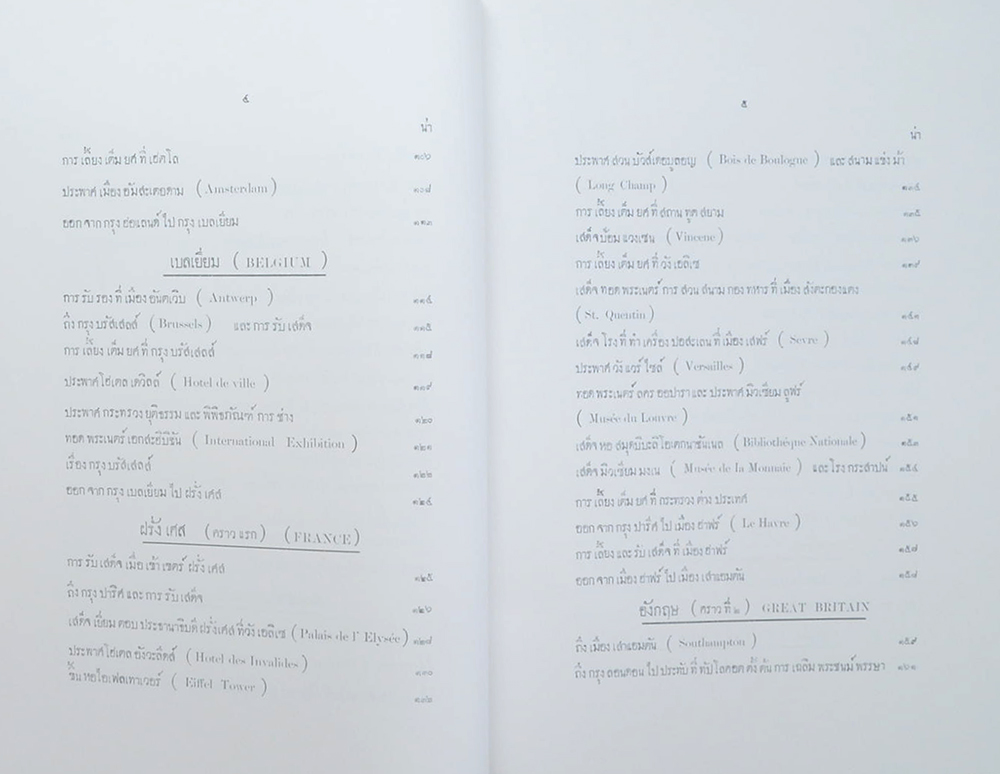 ๔
น่า
การ เลี้ยง เต็ม ยศ ที่ เฮตโล ๑๐๖
ประพาศ เมือง อัมสะเตอดาม (Amsterdam) ๑๐๘
ออก จาก กรุง ฮอแลนด์ ไป กรุง เบลเยี่ยม ๑๑๓
เบลเยี่ยม (BELGIUM)
การ รับ รอง ที่ เมือง อันตเวิบ (Antwerp) ๑๑๔
ถึง กรุง บรัสเสลส์ (Brussels) และ การ รับ เสด็จ ๑๑๕
การ เลี้ยง เต็ม ยศ ที่ กรุง บรัสเสลส์ ๑๑๘
ประพาศ โฮเตล เดวิลล์ (Hotel de ville) ๑๑๙
ประพาศ กระทรวง ยุติธรรม และ พิพิธภัณฑ์ การ ช่าง ๑๒๐
ทอด พระเนตร์ เอกสะฮิบิชัน (International Exhibition) ๑๒๑
เรื่อง กรุง บรัสเสลส์ ๑๒๒
ออก จาก กรุง เบลเยี่ยม ไป ฝรั่ง เศส ๑๒๔
ฝรั่ง เศส (คราว แรก) (FRANCE)
การ รับ เสด็จ เมื่อ เข้า เขตร์ ฝรั่ง เศส ๑๒๕
ถึง กรุง ปารีศ และ การ รับ เสด็จ ๑๒๖
เสด็จ เยี่ยม ตอบ ประธานาธิบดี ฝรั่งเศส ที่ วัง เอลิเซ (Palais de l' Elysée) ๑๒๗
ประพาศ โฮเตล อังวะลิดส์ (Hotel des Invalides) ๑๓๐
ขึ้น หอ ไอเฟลเทาเวอร์ (Eiffel Tower)
๕
น่า
ประพาศ สวน บัวส์เดอบูลอญ (Bois de Boulogne) และ สนาม แข่ง ม้า
(Long Champ) ๑๓๔
การ เลี้ยง เต็ม ยศ ที่ สถาน ทูต สยาม ๑๓๕
เสด็จ ป้อม แวงเซน (Vincene) ๑๓๖
การ เลี้ยง เต็ม ยศ ที่ วัง เอลิเซ ๑๓๙
เสด็จ ทอด พระเนตร์ การ สวน สนาม กอง ทหาร ที่ เมือง สังตะกองแตง
(St. Quentin) ๑๔๑
เสด็จ โรง ที่ ทำ เครื่อง ปอสะเลน ที่ เมือง เสฟร์ (Sevre) ๑๔๘
ประพาศ วัง แวร์ ไซล์ (Versailles) ๑๔๙
ทอด พระเนตร์ ลคร ออปารา และ ประพาศ มิวเซียม ลูฟร์
(Musée du Louvre) ๑๕๑
เสด็จ หอ สมุดบิบะลิโอเตกนาชันเนล (Bibliothéque Nationale) ๑๕๓
เสด็จ มิวเซียม มงเน (Musée de la Monnaie) และ โรง กระสาปน์ ๑๕๔
การ เลี้ยง เต็ม ยศ ที่ กระทรวง ต่าง ประเทศ ๑๕๕
ออก จาก กรุง ปารีศ ไป เมือง ฮาฟร์ (Le Havre) ๑๕๖
การ เลี้ยง และ รับ เสด็จ ที่ เมือง ฮาฟร์ ๑๕๗
ออก จาก เมือง ฮาฟร์ ไป เมือง เสาแฮมตัน ๑๕๘
อังกฤษ (คราว ที่ ๒) GREAT BRITAIN
ถึง เมือง เสาแฮมตัน (Southampton) ๑๕๙
ถึง กรุง ลอนดอน ไป ประทับ ที่ ทัปโลคอต ตั้ง ต้น การ เฉลิม พระชนม์ พรรษา ๑๖๑